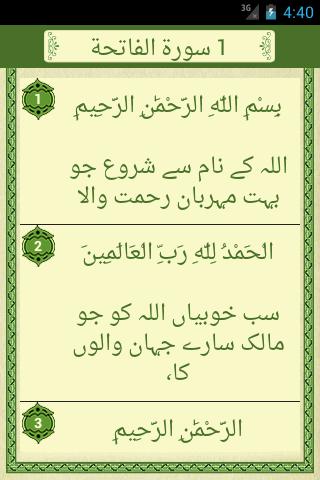 3G 4:40
1 سورة الفاتحة
1
بِسْمِ اللَّهِ الرَّحْمَٰنِ الرَّحِيمِ
اللہ کے نام سے شروع جو
بہت مہربان رحمت والا
2
الْحَمْدُ لِلَّهِ رَبِّ الْعَالَمِينَ
سب خوبیاں اللہ کو جو
مالک سارے جہان والوں
کا،
3
الرَّحْمَٰنِ الرَّحِيمِ